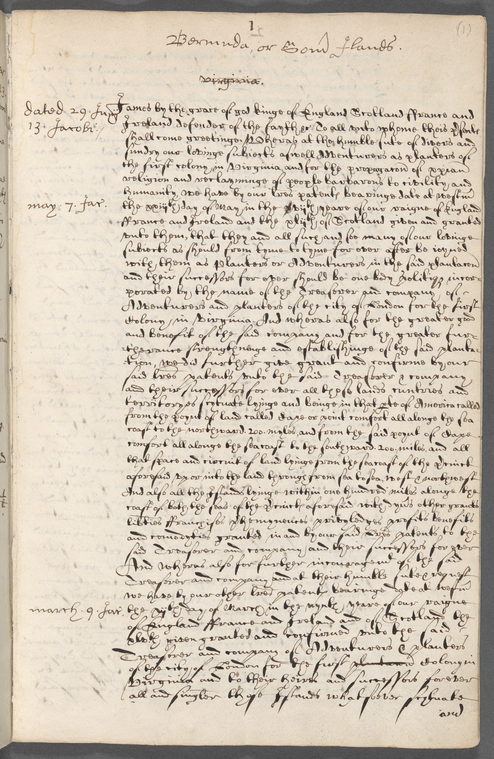 1
(1)
Bermuda, or Som Ilands.
virginia.
dated 29 Jun
13. Jacobi
James by the grace of god kinge of England Scotland ffrance and
Ireland defender of the fayth &c To all unto whome theis
shall come greetinge Whereas at the humble sute of divers and
sundry our lovinge subiects aswell Adventurers as planters of
the first colony in Virginia and for the propagacon of xpian
religion and reclayminge of people barbarous to civility and
humanity we have by our lres patents bearinge date at westm
may. 7. Jac.
the day of May in the yeare of our raigne of England
ffrance and Ireland and the of Scotland given and graunted
unto them, that they and all such and so many of our lovinge
subiects as should from time to time for ever after be ioyned
with them as planters or Adventurers in the said plantacon
and their successors for ever should be one body politiq incor
porated by the name of the Treasorer and company of
Adventurers and planters of the city of London for the first
Colony in Virginia And whereas also for the greater good
and benefit of the said company and for the greater fur
therance strengthninge and establishinge of the said planta
tion we did further give graunt and confirme by our
said lres patents unto the said Treasorer & company
and their successors for ever all those lands cuntries and
territoryes situate lyinge and beinge in that pte of America called
from the point of land called cape or point comfort all alonge the sea
coast to the northward .200. miles and from the said point of cape
comfort all alonge the sea coast to the southward .200. miles and all
that space and circuit of land lyinge from the sea coast of the
aforesaid up or into the land through from sea to sea, west & northwest
And also all the Ilands lyinge within one hundred miles alonge the
coast of both the seas of the aforesaid with divers other graunts
liberties ffranchises preheminences priviledges profits benefits
and comodities graunted in and by our said lres patents to the
said Treasorer and company and their successors for ever
And whereas also for further incouragement of the said
Treasorer and company and at their humble sute & request
we have by our other lres patents bearinge date at westm
march. 9. Jac.
the day of March in the nynth yeare of our raigne
of England ffrance and Ireland and of Scotland the
given graunted and confirmed unto the said
Treasorer and company of Adventurers & planters
of the city of London for the first Colony in
Virginia and to their heires and successors for ever
all and singler those Ilands whatsoever scituate
and